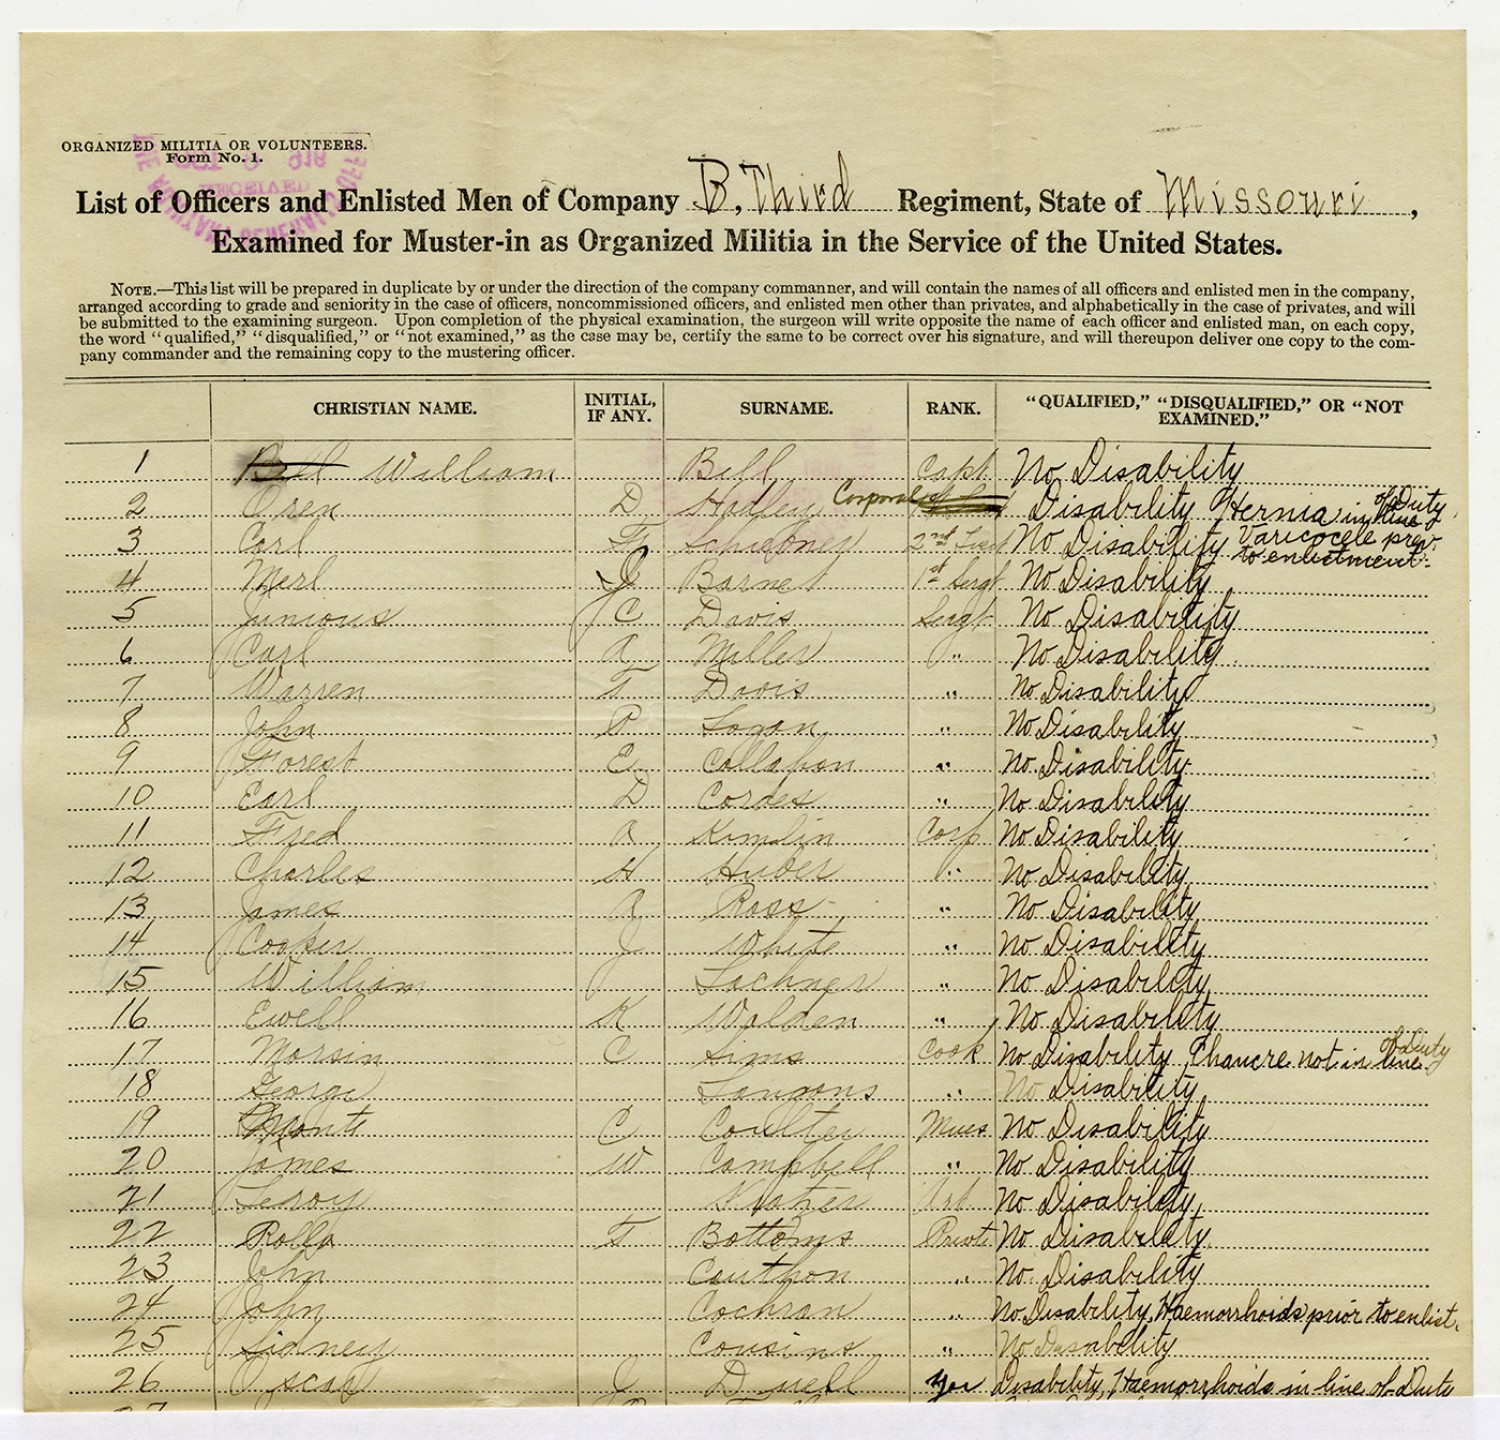 ORGANIZED MILITIA OR VOLUNTEERS.
Form No. 1.
RECEIVED
List of Officers and Enlisted Men of Company B, Third Regiment, State of Missouri,
Examined for Muster-in as Organized Militia in the Service of the United States.
NOTE.—This list will be prepared in duplicate by or under the direction of the company commanner, and will contain the names of all officers and enlisted men in the company,
arranged according to grade and seniority in the case of officers, noncommissioned officers, and enlisted men other than privates, and alphabetically in the case of privates, and will
be submitted to the examining surgeon. Upon completion of the physical examination, the surgeon will write opposite the name of each officer and enlisted man, on each copy,
the word "qualified," "disqualified," or "not examined," as the case may be, certify the same to be correct over his signature, and will thereupon deliver one copy to the com-
pany commander and the remaining copy to the mustering officer.
CHRISTIAN NAME. INITIAL, IF ANY. SURNAME. RANK. "QUALIFIED," "DISQUALIFIED," OR "NOT EXAMINED."
1 Bell William Bell Capt. No Disability
2 Oren D Hatley Corporal Disability Hernia in line of Duty
3 Carl F 2nd No Disability Varicocele prev. to enlistment.
4 Merl J Barnet 1st Sergt No Disability
5 Junious C Davis Sergt No Disability
6 Carl A Miller " No Disability.
7 Warren T Davis " No Disability
8 John P Logan " No Disability
9 Forest E Callahan " No Disability
10 Earl D Cordes " No Disability
11 Fred A Kimlin Corp No Disability
12 Charles H Huber " No Disability
13 James A Ross " No Disability
14 Cooker J White " No Disability
15 William Lochner " No Disability
16 Ewell K Walden " No Disability
17 C Sims Cook No Disability, Chancre not in line of Duty
18 George " No Disability
19 Monte C Coulter Mues No Disability
20 James W Campbell " No Disability
21 Leroy Art No Disability
22 Rolla T Bottoms Privt No Disability
23 John Cauthon " No Disability
24 John Cochran " No Disability, Haemorrhoids prior to enlist.
25 Sidney Cousins " No Disability
26 Oscar J Duell Disability, Haemorrhoids in line of Duty
27